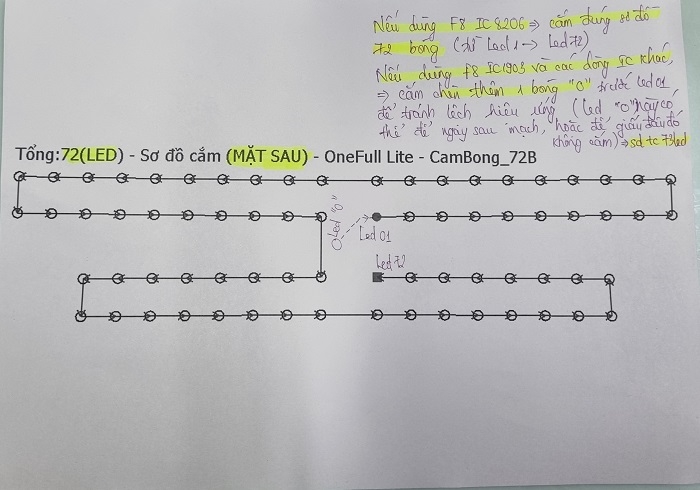 Nếu dùng F8 IC 8206 => cắm đúng sơ đồ
72 bóng (từ Led 1 -> Led 72)
Nếu dùng F8 IC1903 và các dòng IC khác,
=> cắm chèn thêm 1 bóng "0" trước led 01
để tránh lệch hiệu ứng (led "0" này có
thể để ngay sau mạch, hoặc để giấu đâu đó
không cắm) => sd tc 73led
Tổng:72(LED) - Sơ đồ cắm (MẶT SAU) - OneFull Lite - CamBong_72B
Led "0"
Led 01
Led 72